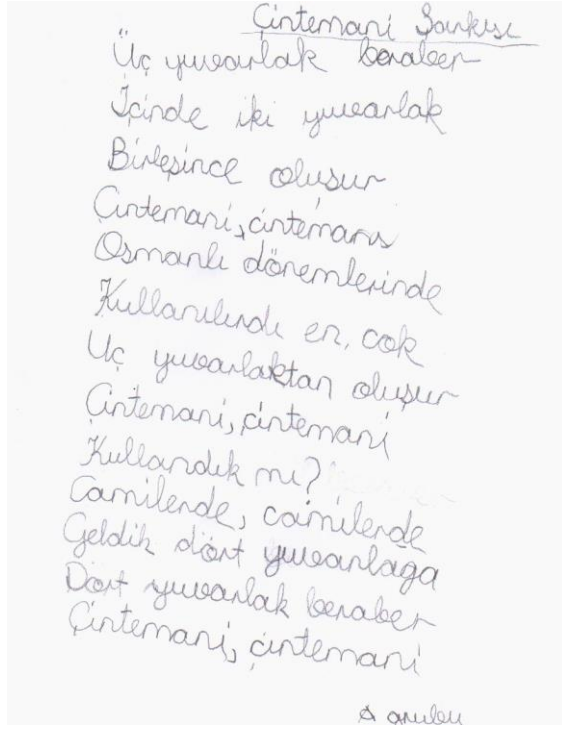 Çintemani Şarkısı
Üç yuvarlak beraber
İçinde iki yuvarlak
Birleşince oluşur
Çintemani, çintemani
Osmanlı dönemlerinde
Kullanılırdı en, çok
Üç yuvarlaktan oluşur
Çintemani, çintemani
Kullandık mı?
Camilerde, camilerde
Geldik dört yuvarlağa
Dört yuvarlak beraber
Çintemani, çintemani